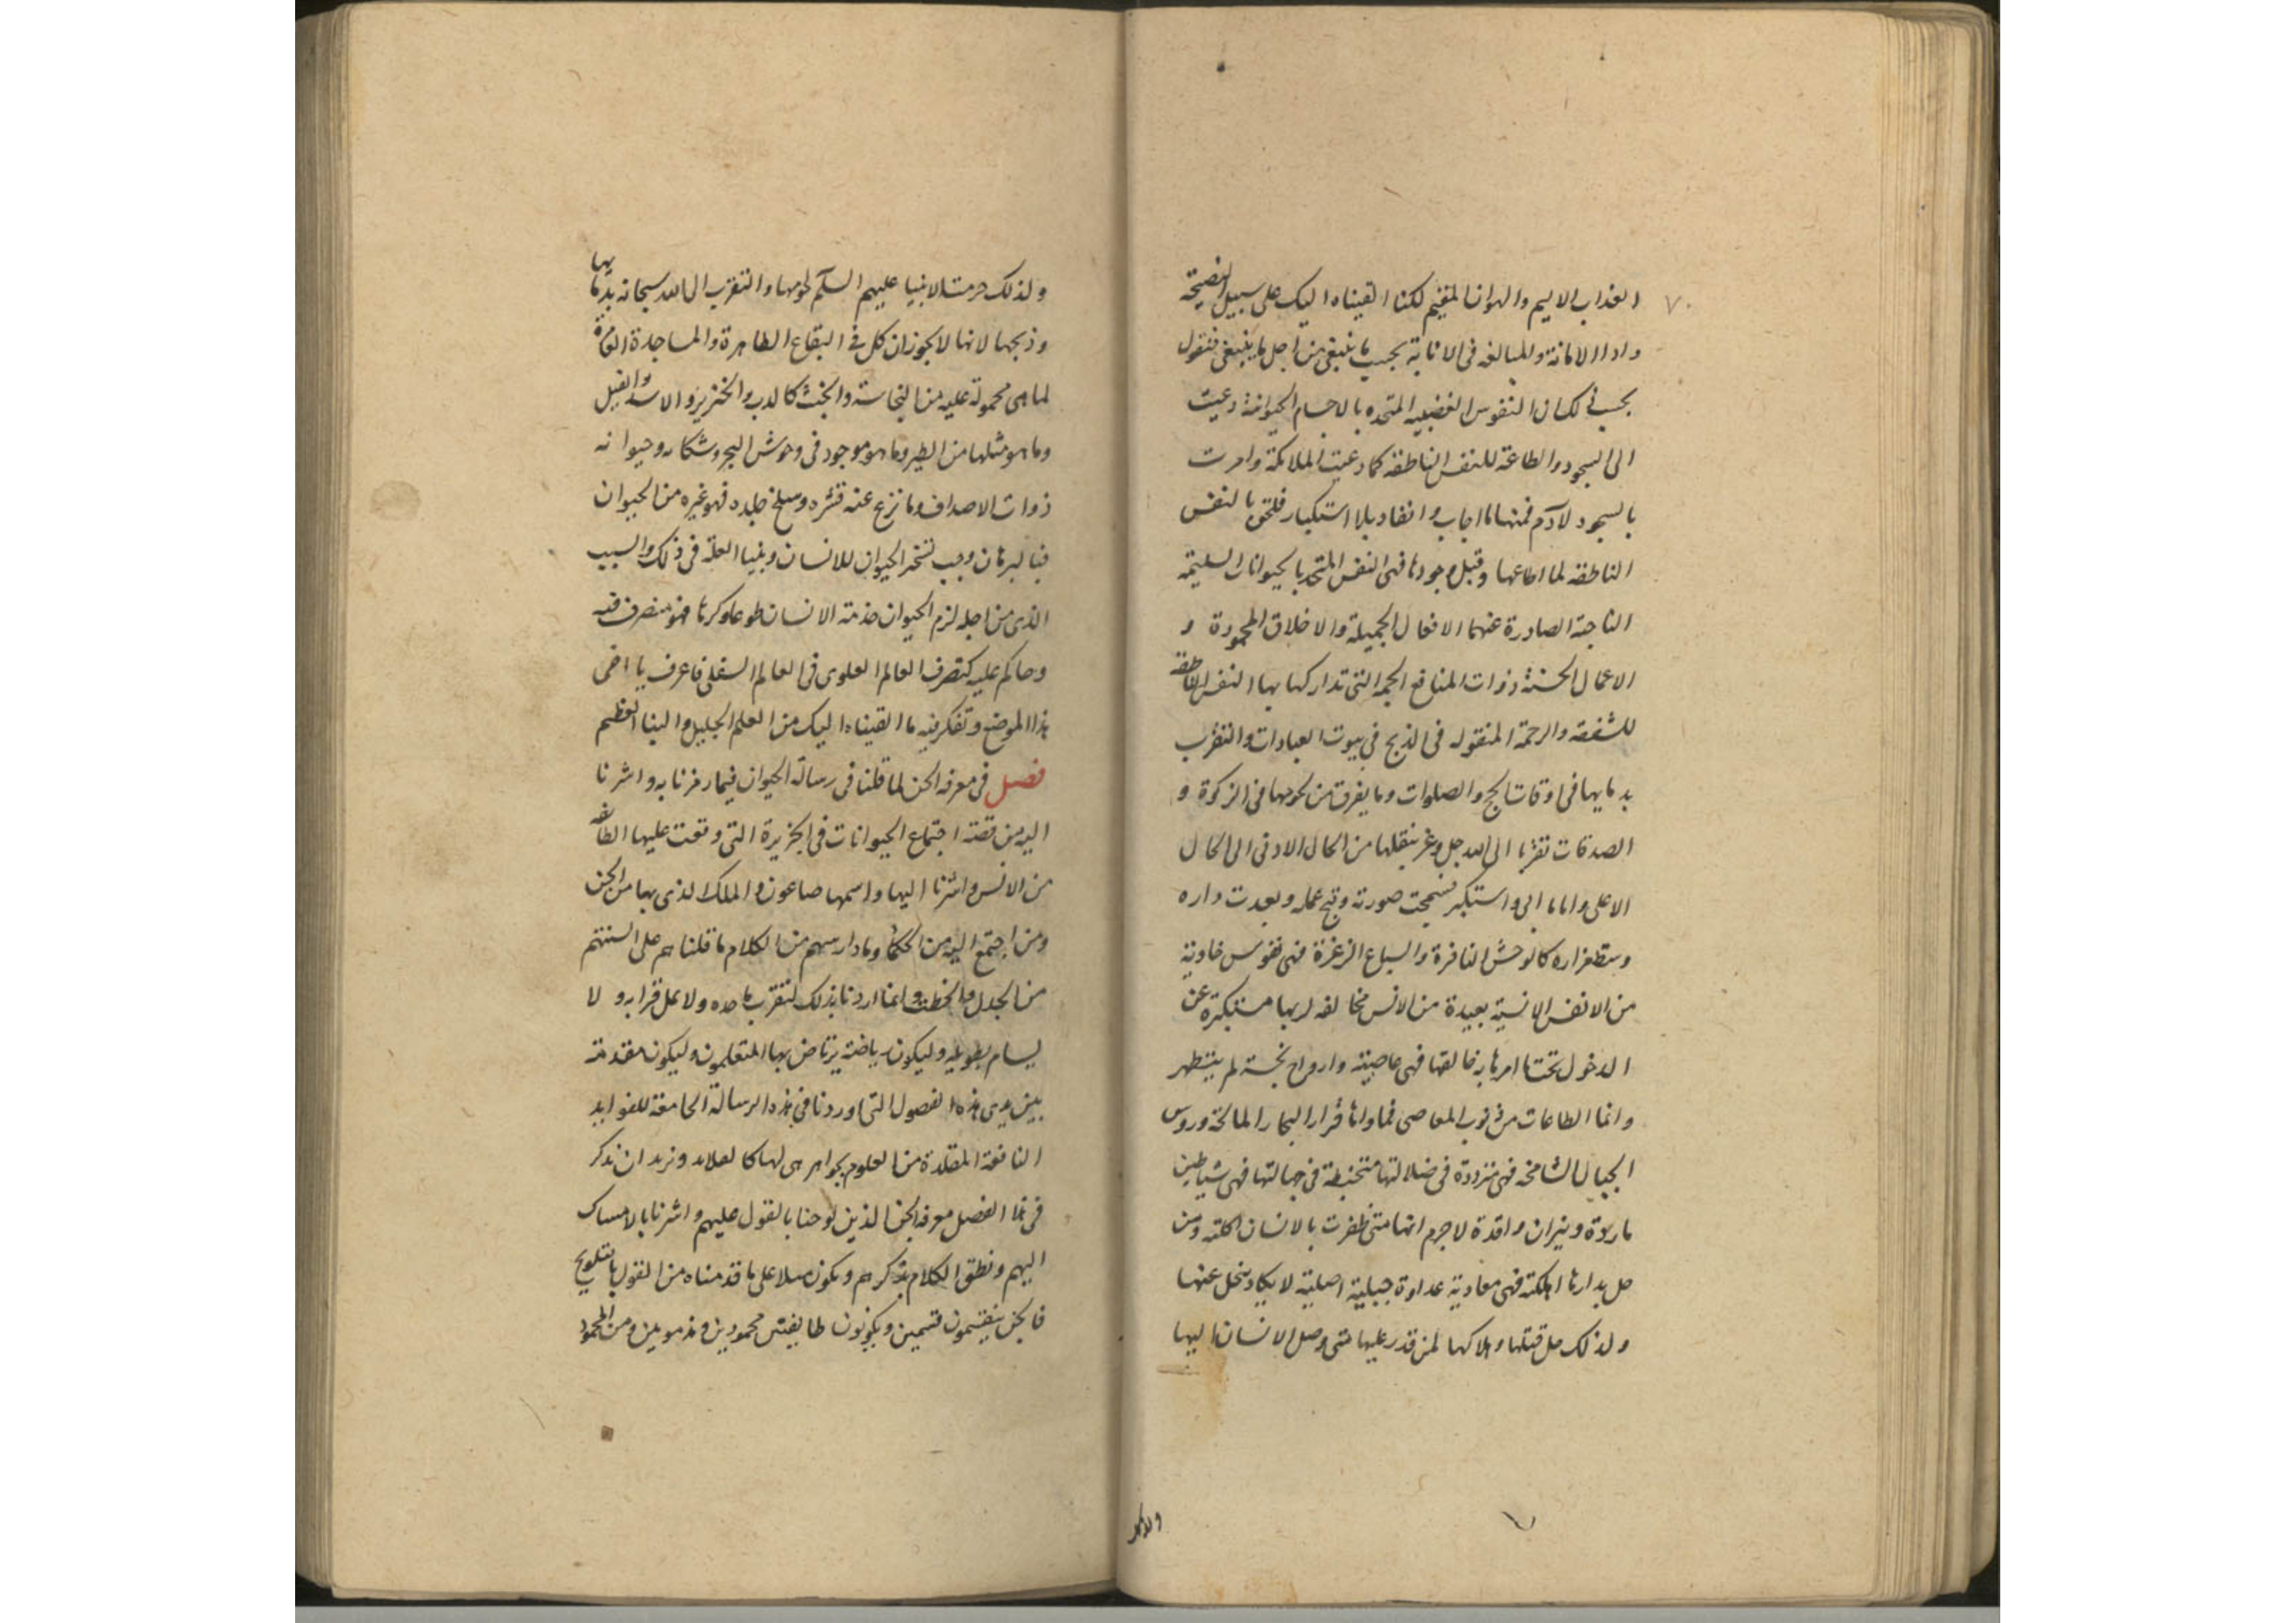 ٧٠
العذاب الاليم والهوان المقيم لكنا القيناه اليك على سبيل النصيحة
واداء الامانة وللمبالغه فى الانابة بحسب ما ينبغى من اجل ما ينبغى فنقول
بحسب ذلك ان النفوس الغضبيه المتحده بالاجسام الحيوانية دعيت
الى السجود والطاعة للنفس الناطقه كما دعيت الملائكة وامرت
بالسجود لآدم فمنها ما اجاب وانقاد بلا استكبار فلحق بالنفس
الناطقه لما اطاعها وقبل وجودها فهى النفس المتحد بالحيوانات السليمة
الناجية الصادرة عنهما الافعال الجميلة والاخلاق المحمودة و
الاعمال الحسنة ذوات المنافع الجمه التى تداركها بها النفس الناطقة
للشفقه والرحمة المنقوله فى الذبح فى بيوت العبادات والتقرب
بدمايها فى اوقات الحج والصلوات وما يفرق من لحومها فى الزكوة و
الصدقات تقربا الى الله جل وعز بنقلها من الحال الادنى الى الحال
الاعلى واما ما ابى واستكبر فسمجت صورته وقبح عمله وبعدت داره
وسطع فراره كالوحش النافرة والسباع الزعرة فهى نفوس خاوية
من الانفس الانسية بعيدة من الانس مخالفه لربها مستكبرة عن
الدخول تحت امرها به خالقها فهى عاصية وارواح نجسة لم يتطهر
وانما الطاعات من ذنوب المعاصى فماواها قرار البحار المالحة وروس
الجبال الشامخه فهى مترددة فى ضلالتها متخبطة فى جهالتها فهى شياطين
ماردة ونيران واقدة لا جرم انها متى ظفرت بالانسان اكلته ومن
حل بدارها اهلكته فهى معادية عداوة جبلية اصلية لا يكاد ينحل عنها
ولذلك حل قتلها واهلاكها لمن قدر عليها متى وصل الانسان اليها
ولذلك
ولذلك حرمت الانبيا عليهم السلم لحومها والتقرب الى الله سبحانه بدمايها
وذبحها لانها لا يجوز ان كل فى البقاع الطاهرة والمساجدة العامرة
لما هى محمولة عليه من النجاسة والخبث كالدب والخنزير والاسد والفيل
وما هو مثلها من الطير وما هو موجود فى وحوش البحر وشكاره وحيوانه
ذوات الاصداف وما نزع عنه قشره وسلخ جلده فهو غيره من الحيوان
فبالبرهان وجب تسخر الحيوان للانسان وبينا العلة فى ذلك والسبب
الذى من اجله لزم الحيوان خدمة الانسان طوعا وكرها فهو متصرف فيه
وحاكم عليه كتصرف العالم العلوى فى العالم السفلى فاعرف يا اخى
هذا الموضع وتفكر فيه ما القيناه اليك من العلم الجليل والنبا العظيم
فصل فى معرفه الجن لما قلنا فى رسالة الحيوان فيما رمزنا به واشرنا
اليه من قصة اجتماع الحيوانات فى الجزيرة التى وقعت عليها الطائفه
من الانس واشرنا اليها واسمها صاعون والملك الذى بها من الجن
ومن اجتمع اليه من الحكما وما دار بينهم من الكلام ما قلناهم على السنتهم
من الجدل والخطب وانما اردنا بذلك لتقرب ماخذه ولا يمل قرابه ولا
يسام بطويله وليكون رياضة يرتاض بها المتعلمون وليكون مقدمة
بين يدى هذه الفصول التى اوردنا فى هذه الرسالة الجامعة للفوايد
النافعة المقلدة من العلوم بجواهر هى لها كالقلايد ونريد ان نذكر
فى هذا الفصل معرفه الجن الذين لوحنا بالقول عليهم واشرنا بالامساك
اليهم ونطق الكلام بذكرهم ويكون مبلا على ما قدمناه من القول بالتلويح
فالجن ينقسمون قسمين ويكونون طايفتين محمودين ومذمومين ومن المحمود